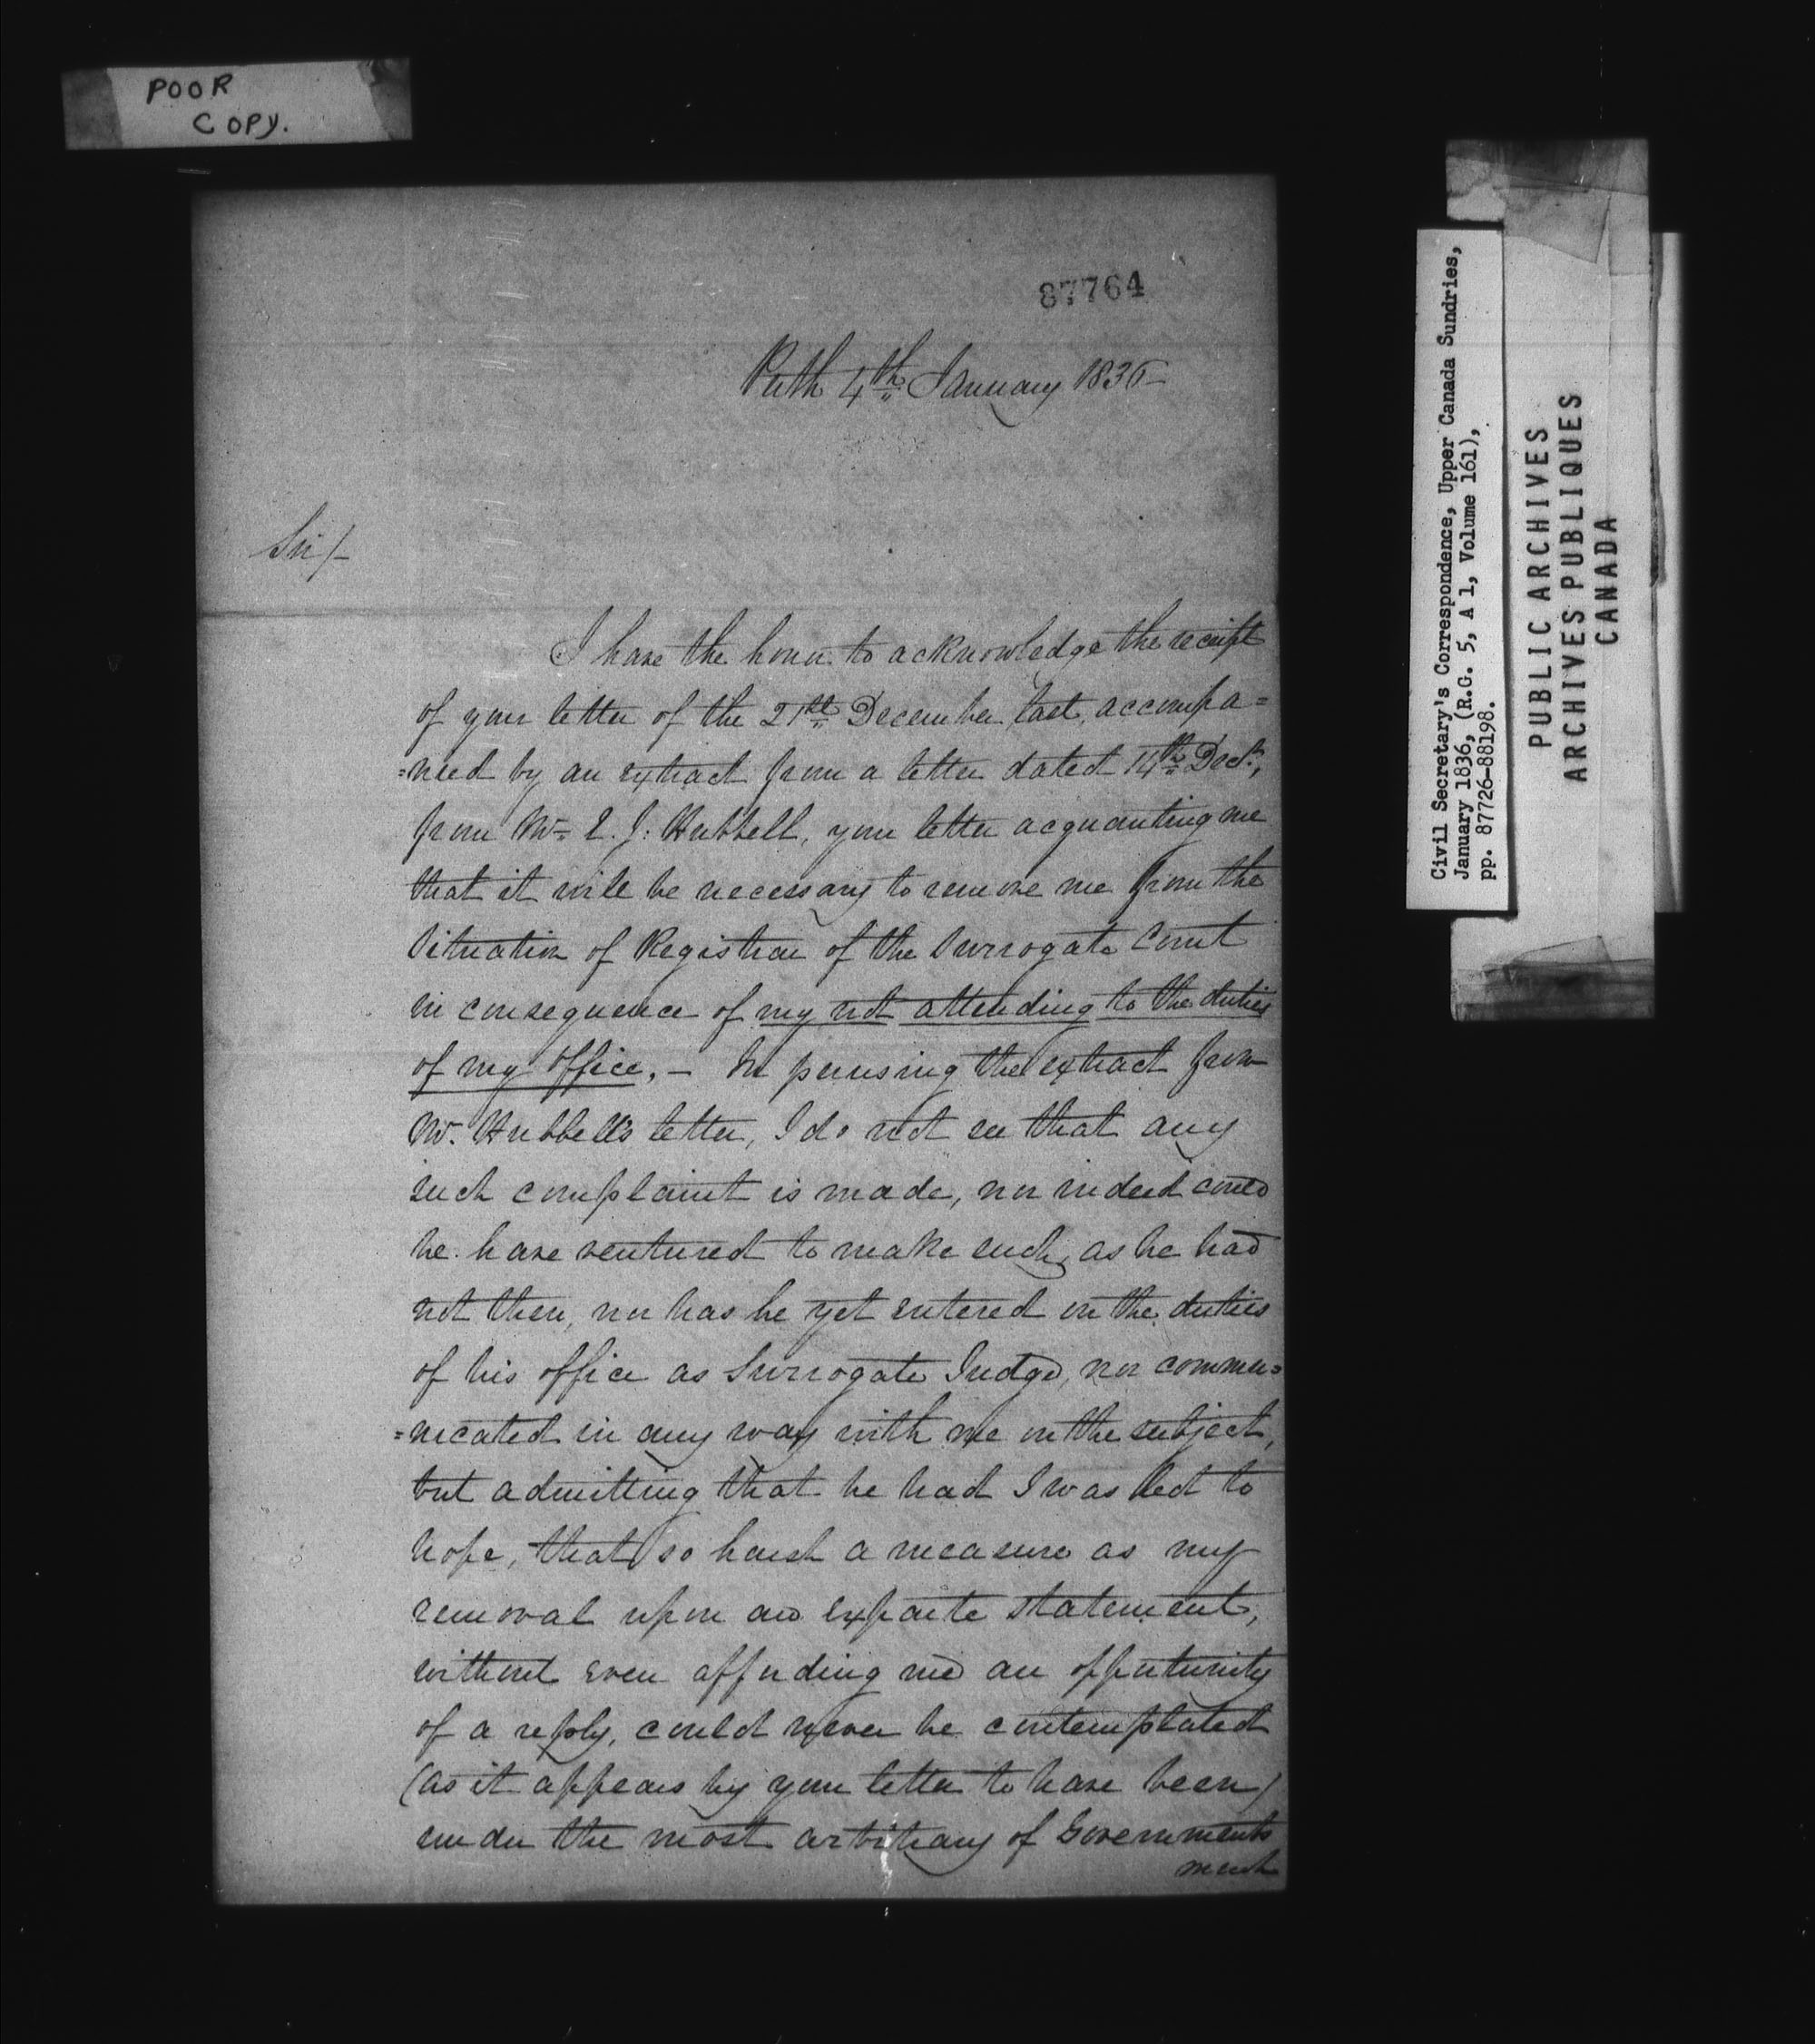 POOR
COPY.
87764
Perth 4th January 1836
Sir/-
I have the honor to acknowledge the receipt
of your letter of the 21st December last, accompa=
=nied by an extract from a letter dated 14th Decr,
from Mr. E. J. Hubbell, your letter acquainting me
that it will be necessary to remove me from the
Situation of Registrar of the Surrogate Court
in consequence of my not attending to the duties
of my office. - In perusing the extract from
Mr. Hubbell's letter, I do not see that any
such complaint is made, nor indeed could
he have ventured to make such, as he had
not then, nor has he yet entered on the duties
of his office as Surrogate Judge, nor commu=
=nicated in any way with me on the subject,
but admitting that he had I was led to
hope, that so harsh a measure as my
removal upon an exparte statement,
without even affording me an opportunity
of a reply, could never be contemplated
(as it appears by your letter to have been)
under the most arbitrary of Governments
much
Civil Secretary's Correspondence, Upper Canada Sundries,
January 1836, (R.G. 5, A 1, Volume 161),
pp. 87726-88198.
PUBLIC ARCHIVES
ARCHIVES PUBLIQUES
CANADA